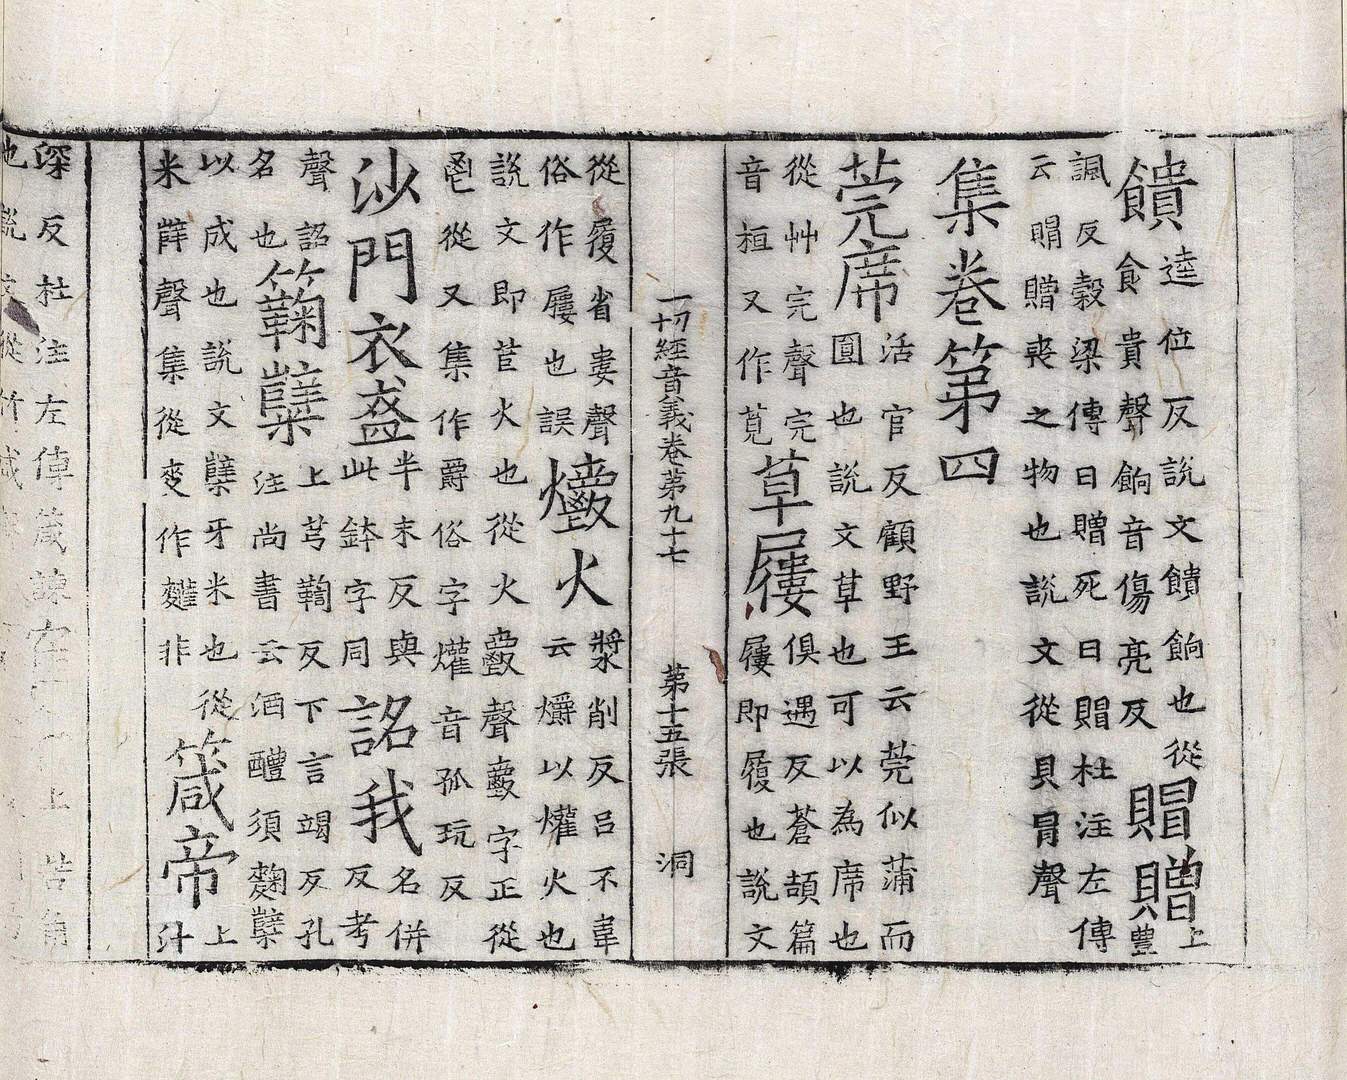 饋逵位反說文饋餉也從
食貴聲餉音傷亮反賵贈上
豐
諷反穀梁傳曰贈死曰賵杜注左傳
云賵贈喪之物也說文從貝冒聲
集卷第四
莞席活官反顧野王云莞似蒲而
圓也說文草也可以為席也
從艸完聲完
音桓又作莧草屨俱遇反蒼頡篇
屨即履也說文
一切經音義卷第九十七 第十五張 洞
從履省婁聲
俗作屨也誤爝火漿削反呂不韋
云爝以爟火也
說文即苣火也從火爵聲爵字正從
鬯從又集作爵俗字爟音孤玩反
沙門衣盔半末反與
此鉢字同詺我名併
反考
聲詺
名也麴櫱上芎鞫反下言竭反孔
注尚書云酒醴須麴櫱
以成也說文櫱牙米也從
米辥聲集從麥作䴷非箴帝上
汁
深反杜注左傳箴諫
也說文從竹咸